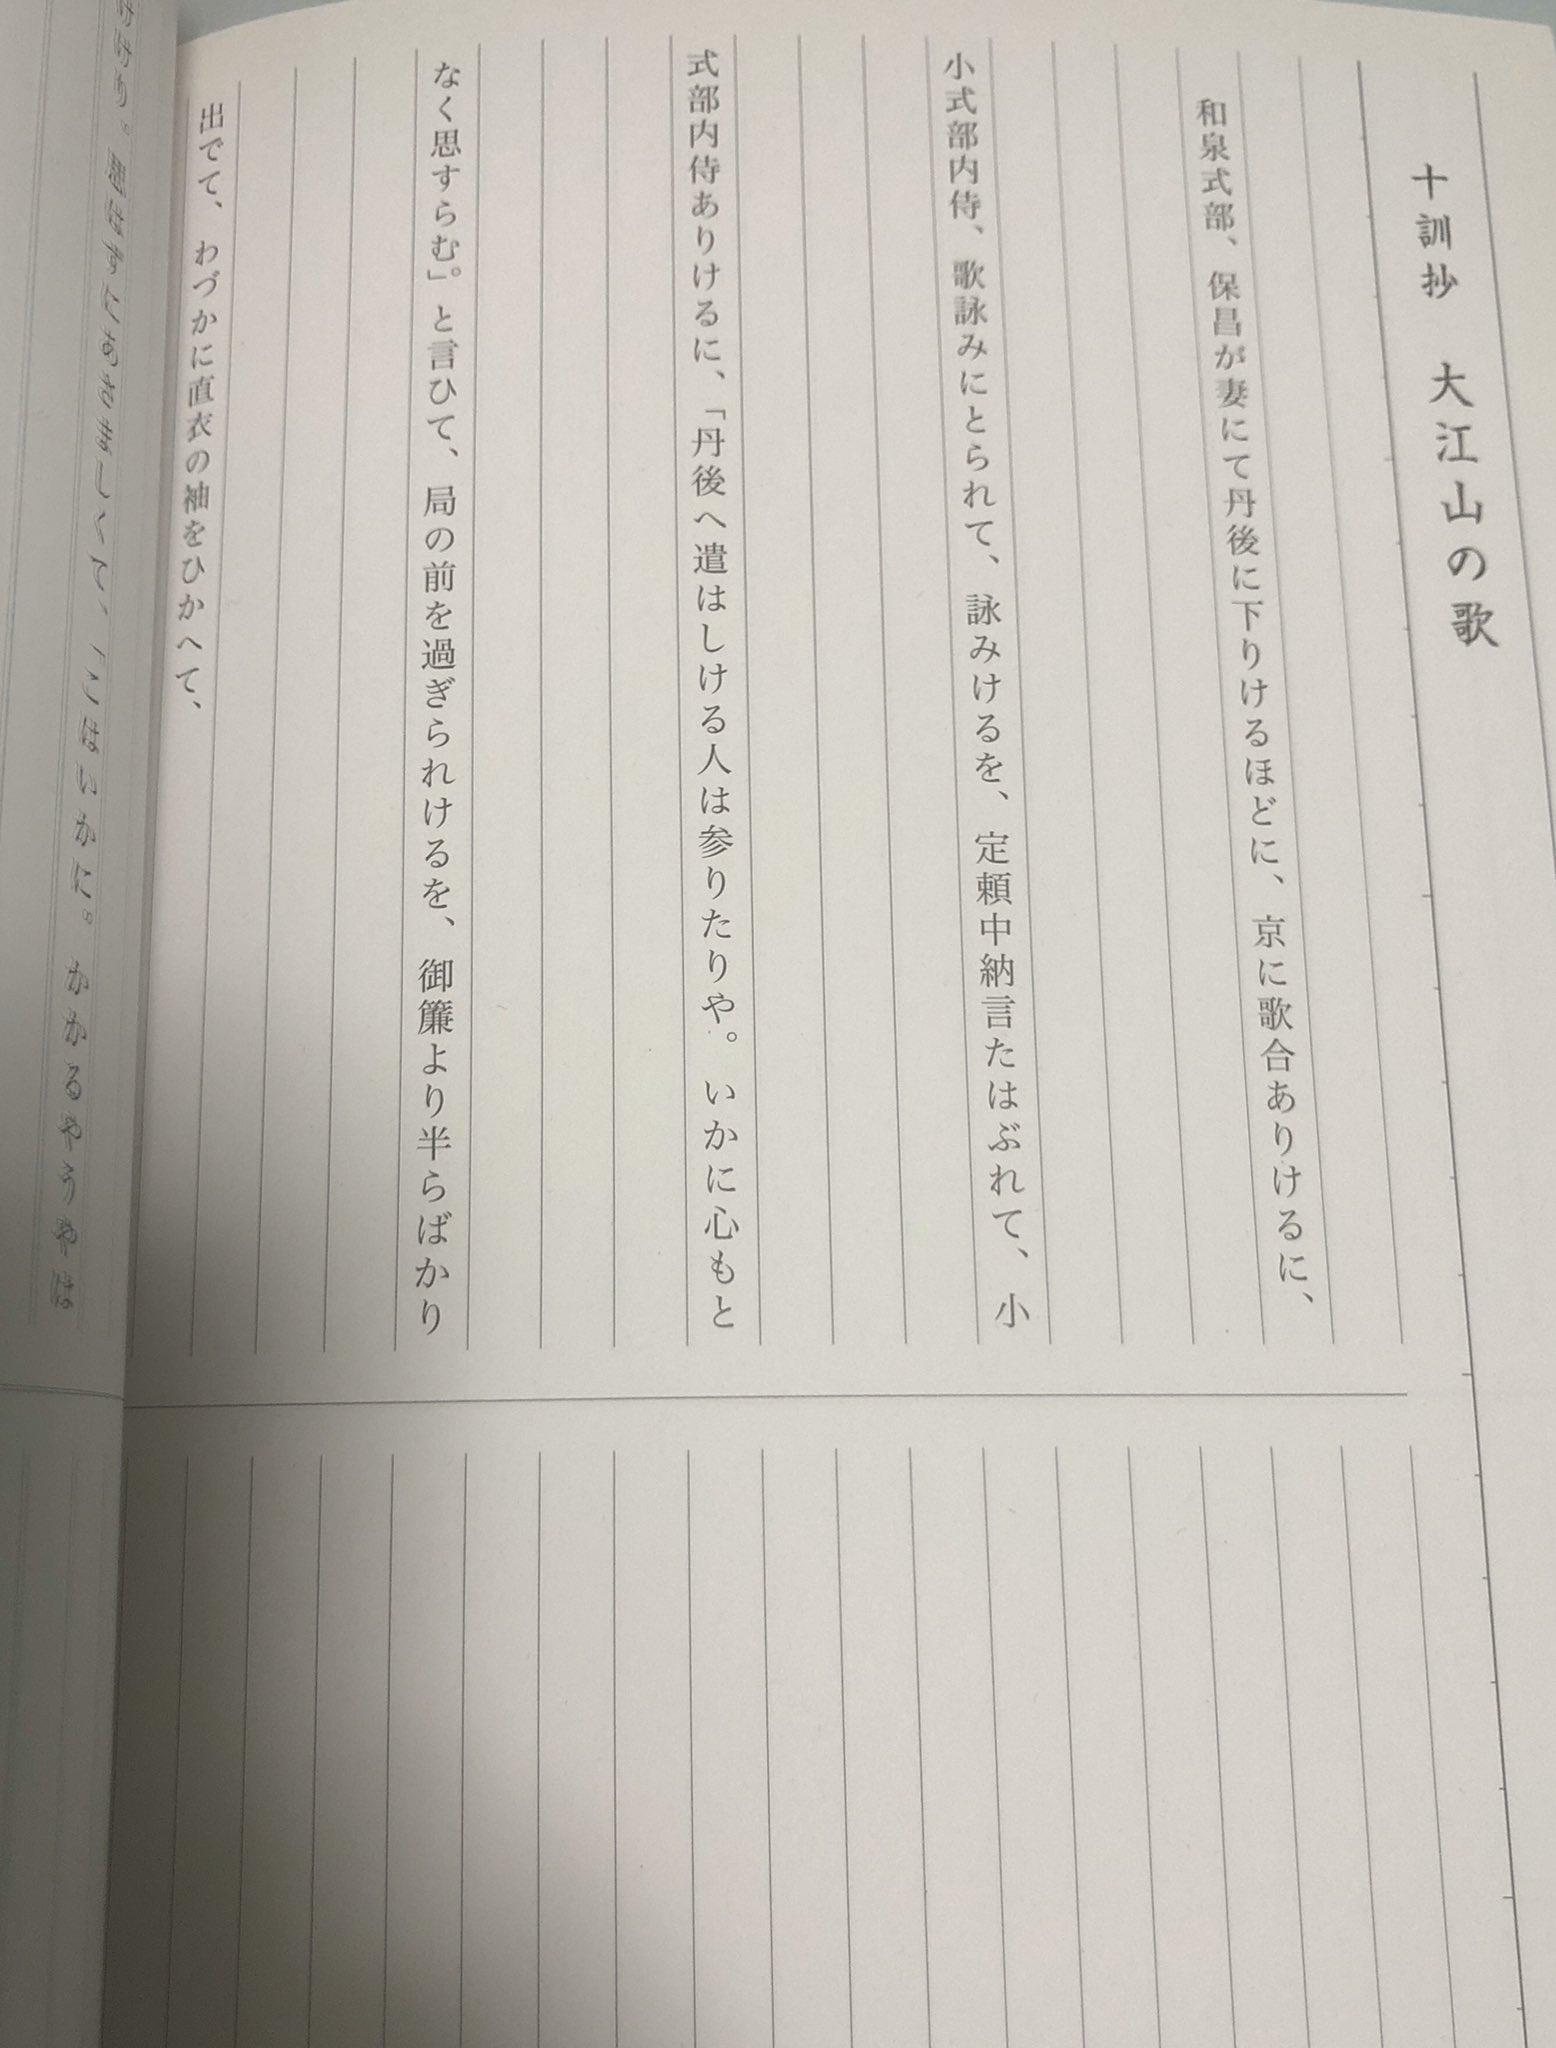 十訓抄　大江山の歌
和泉式部、保昌が妻にて丹後に下りけるほどに、京に歌合ありけるに、
小式部内侍、歌詠みにとられて、詠みけるを、定頼中納言たはぶれて、小
式部内侍ありけるに、「丹後へ遣はしける人は参りたりや。いかに心もと
なく思すらむ」。と言ひて、局の前を過ぎられけるを、御簾より半らばかり
出でて、わづかに直衣の袖をひかへて、
「こはいかに。かかるやうやは